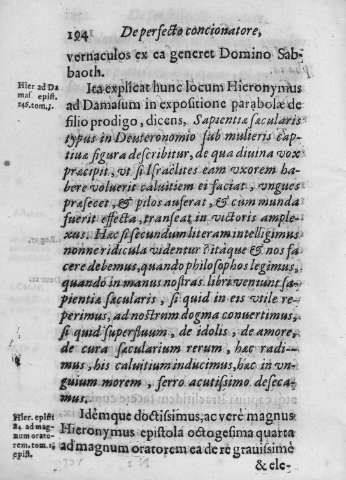 194 De perfecto concionatore,
vernaculos ex ea generet Domino Sab-
baoth.
Hier ad Da
mas. epist.
146. tom. 3.
Ita explicat hunc locum Hieronymus
ad Damasum in expositione parabolæ de
filio prodigo, dicens, Sapientiæ sæcularis
typus in Deuteronomio sub mulieris cap-
tiuæ figura describitur, de qua diuina vox
præcipit, vt si Israëlites eam vxorem ha-
bere voluerit caluitiem ei faciat, vngues
præsecet, & pilos auferat, & cum munda
fuerit effecta, transeat in victorisample-
xus. Hæc si secundum literam intelligimus
nonne ridicula videntur? itáque & nos fa
cere debemus, quando philosophos legimus,
quando in manus nostras libri veniunt sa-
pientiæ sæcularis, si quid in eis vtile re-
perimus, ad nostrum dogma conuertimus,
si quid superfluum, de idolis, de amore,
de cura sæcularium rerum, hæc radi-
mus, his caluitium inducimus, hæc in vn-
guium morem, ferro acutissimo deseca-
mus.
Hier. epist
84. ad mag-
num orato-
rem. tom. 1.
epist.
Idémque doctissimus, ac verè magnus
Hieronymus epistola octogesima quarta
ad magnum oratorem ea de rè grauissimè
& ele-